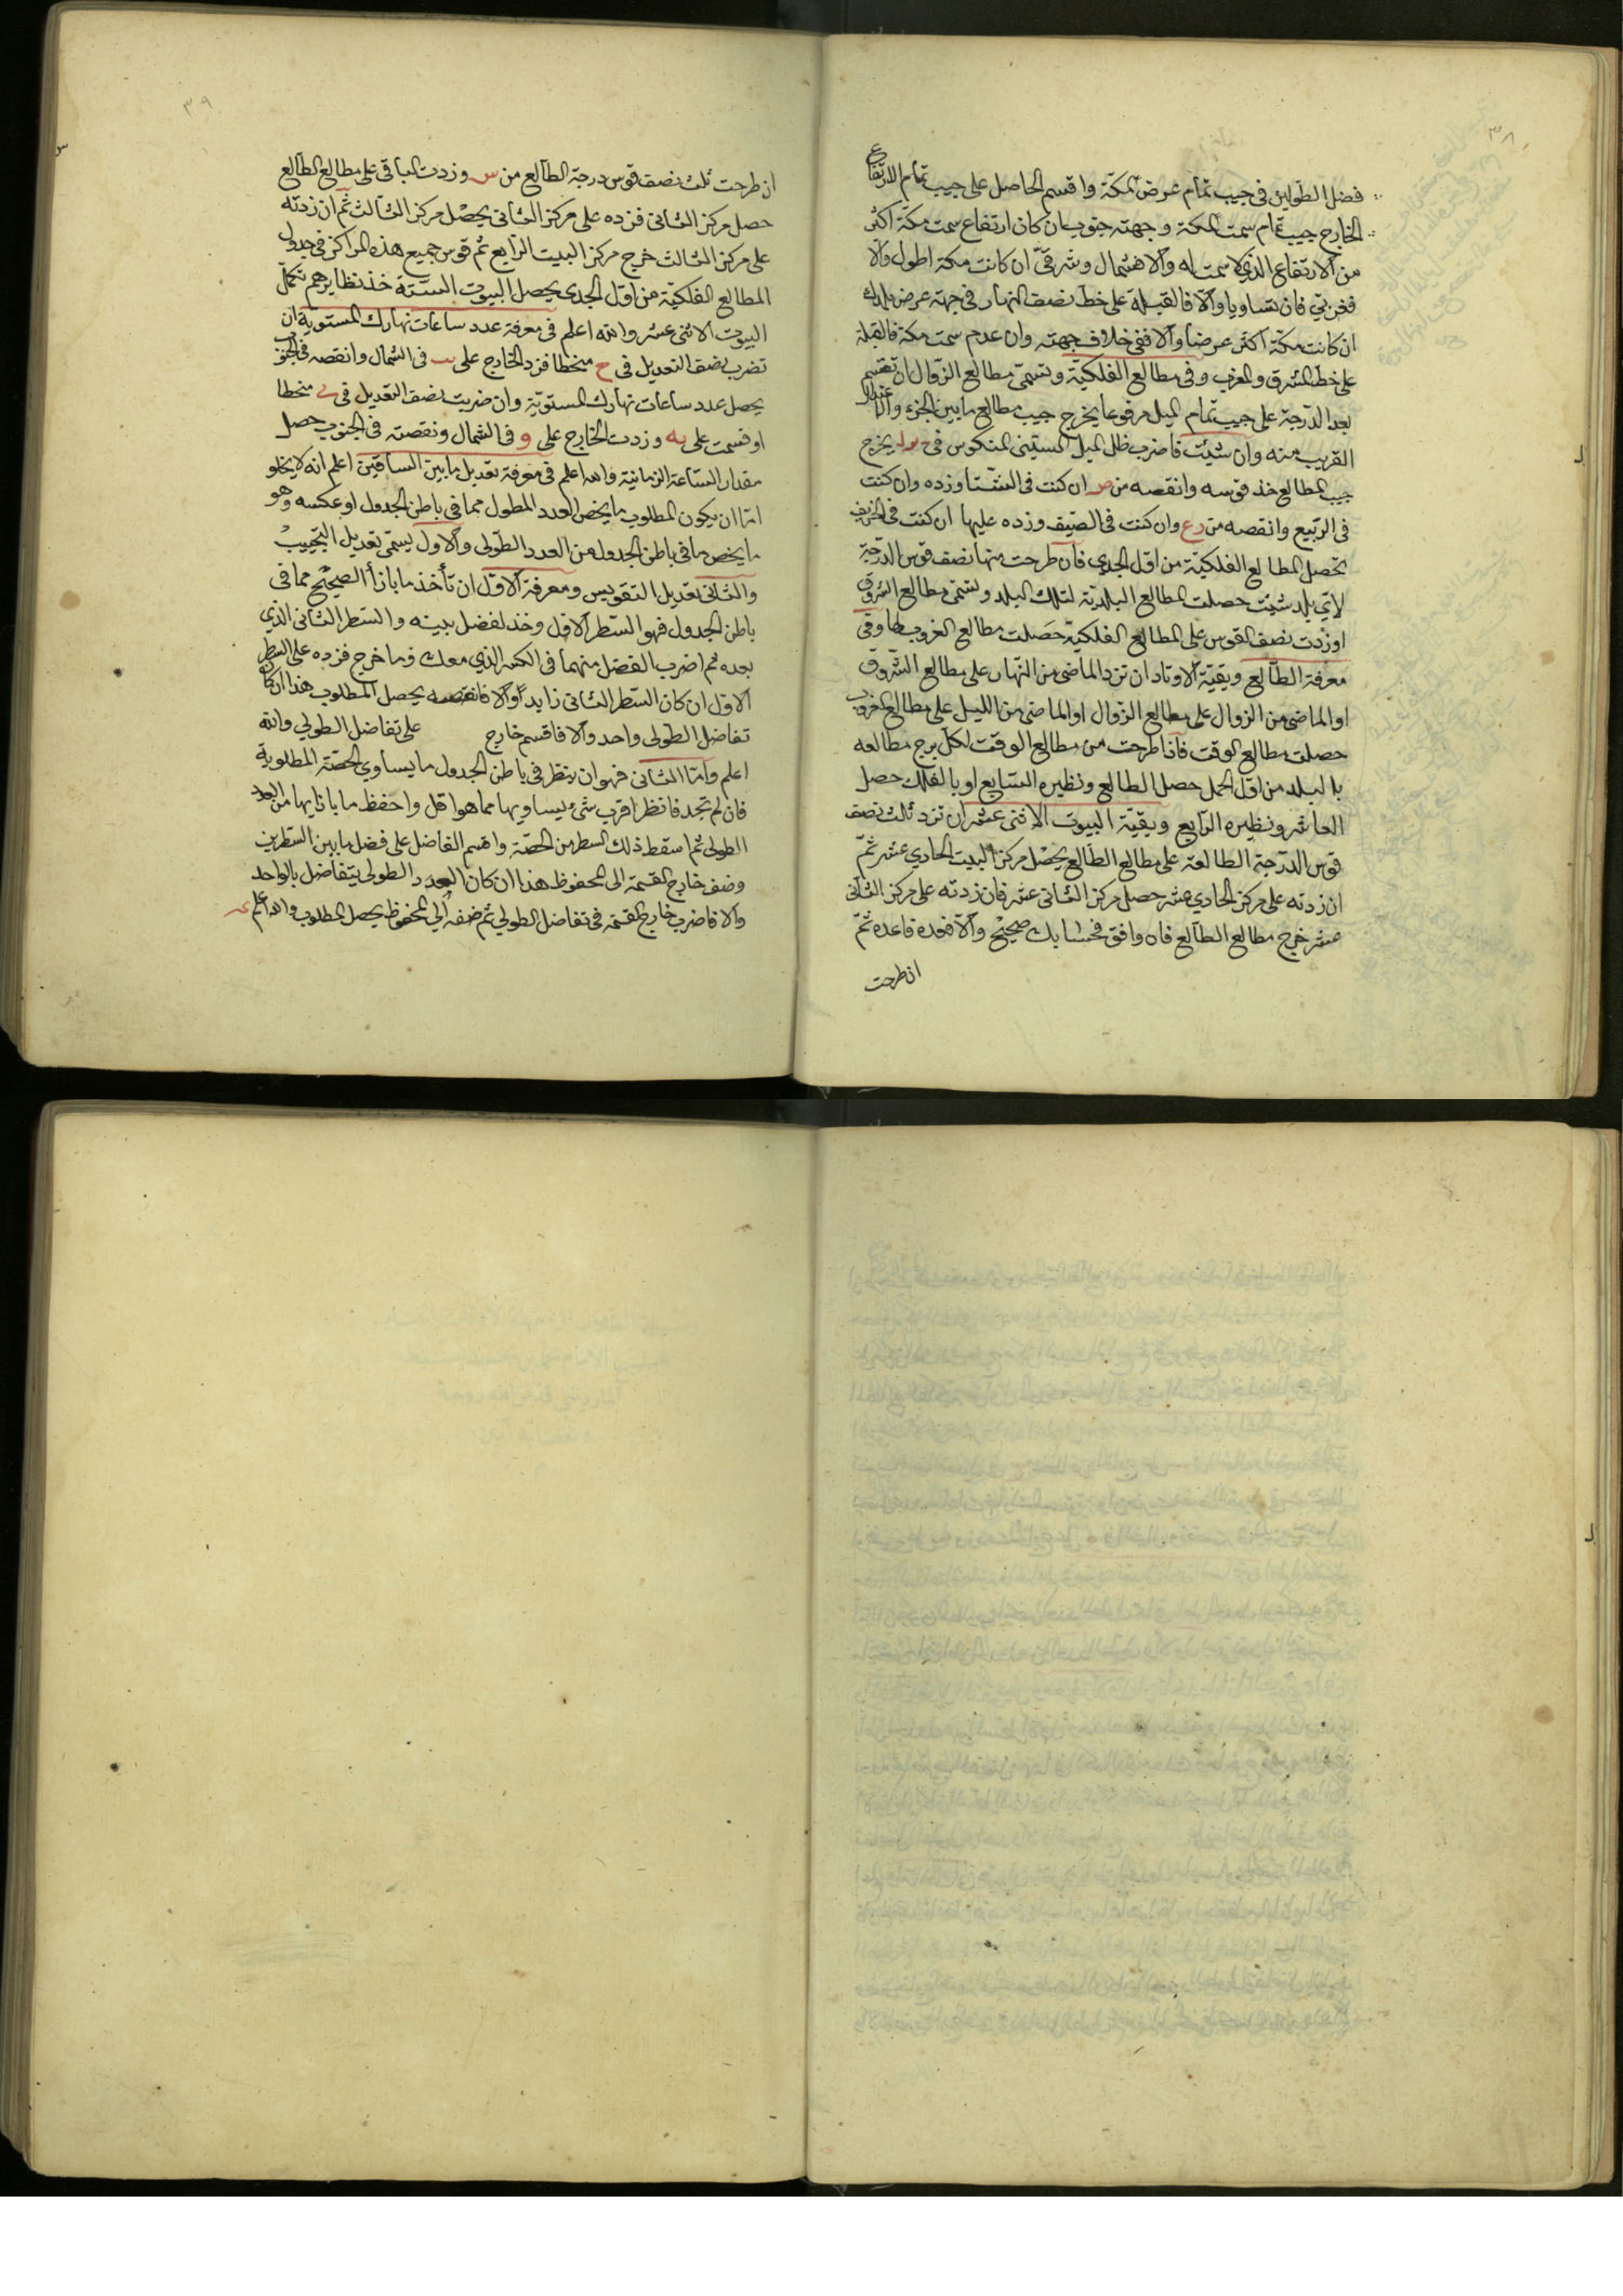 ٣٨
فضل الطولين في جيب تمام عرض مكة واقسم الحاصل على جيب تمام الارتفاع
الخارج جيب تمام سمت مكة وجهته جنوب ان كان ارتفاع سمت مكة اكثر
من الارتفاع الذي لا سمت له والا فشمال وشرقي ان كانت مكة اطول والا
فغربي فان تساويا والا فالقبلة على خط نصف النهار في جهة عرض بلدك
ان كانت مكة اكثر عرضا والا ففي خلاف جهته وان عدم سمت مكة فالقبلة
على خط المشرق والمغرب وفي مطالع الفلكية وتسمى مطالع الزوال ان تقسم
بعد الدرجة على جيب تمام الميل مرفوعا يخرج جيب مطالع ما بين الجزء والاعتدال
القريب منه وان شئت فاضرب ظل الميل الستيني المنكوس في يخرج
جيب المطالع خذ قوسه وانقصه من ص ان كنت في الشتا وزده وان كنت
في الربيع وانقصه من رع وان كنت في الصيف وزده عليها ان كنت في الخريف
تحصل المطالع الفلكية من اول الجدي فان طرحت منها نصف قوس الدرجة
لاي بلد شئت حصلت المطالع البلدية لتلك البلد وتسمى مطالع الشروق
او زدت نصف القوس على المطالع الفلكية حصلت مطالع الغروب لها وفي
معرفة الطالع وبقية الاوتاد ان تزد الماضي من النهار على مطالع الشروق
او الماضي من الزوال على مطالع الزوال او الماضي من الليل على مطالع الغروب
حصلت مطالع الوقت فاذا طرحت من مطالع الوقت لكل برج مطالعه
بالبلد من اول الحمل حصل الطالع ونظيره السابع او بالفلك حصل
العاشر ونظيره الرابع وبقية البيوت الاثني عشر ان تزد ثلث نصف
قوس الدرجة الطالعة على مطالع الطالع يحصل مركز البيت الحادي عشر ثم
ان زدته على مركز الحادي عشر حصل مركز الثاني عشر فان زدته على مركز الثاني
عشر خرج مطالع الطالع فان وافق فحسابك صحيح والا فخذه قاعدة ثم
ان طرحت
٣٩
ان طرحت ثلث نصف قوس درجة الطالع من س وزدت الباقي على مطالع الطالع
حصل مركز الثاني فزده على مركز الثاني يحصل مركز الثالث ثم ان زدته
على مركز الثالث خرج مركز البيت الرابع ثم قوس جميع هذه المراكز في جدول
المطالع الفلكية من اول الجدي يحصل البيوت الستة خذ نظايرهم تكمل
البيوت الاثني عشر والله اعلم في معرفة عدد ساعات نهارك المستوية ان
تضرب نصف التعديل في ح منحطا فزد الخارج على يب في الشمال وانقصه في الجنوب
يحصل عدد ساعات نهارك المستوية وان ضربت نصف التعديل في ي منحطا
او قسمت على يه وزدت الخارج على و في الشمال ونقصته في الجنوب حصل
مقدار الساعة الزمانية والله اعلم في معرفة تعديل ما بين السافين اعلم انه لا يخلو
اما ان يكون المطلوب ما يخص العدد المطول مما في باطن الجدول او عكسه وهو
ما يخص ما في باطن الجدول من العدد الطولي والاول يسمى تعديل التجييب
والثاني تعديل التقويس ومعرفة الاول ان تأخذ ما بازأ الصحيح مما في
باطن الجدول فهو السطر الاول وخذ الفضل بينه والسطر الثاني الذي
بعده ثم اضرب الفضل منهما في الكسر الذي معك وما خرج فزده على السطر
الاول ان كان السطر الثاني زايدا والا فانقصه يحصل المطلوب هذا ان كان
تفاضل الطولى واحد والا فاقسم خارج على تفاضل الطولي والله
اعلم واما الثاني فهو ان ينظر في باطن الجدول ما يساوي الحصة المطلوبة
فان لم تجد فانظر اقرب شئ يساويها مما هو اقل واحفظ ما بازايها من العدد
الطولى ثم اسقط ذلك السطر من الحصة واقسم الفاضل على فضل ما بين السطرين
وضف خارج القسمة الى المحفوظ هذا ان كان العدد الطولى يتفاضل بالواحد
والا فاضرب خارج القسمة في تفاضل الطولى ثم ضفه الى المحفوظ يحصل المطلوب والله اعلم